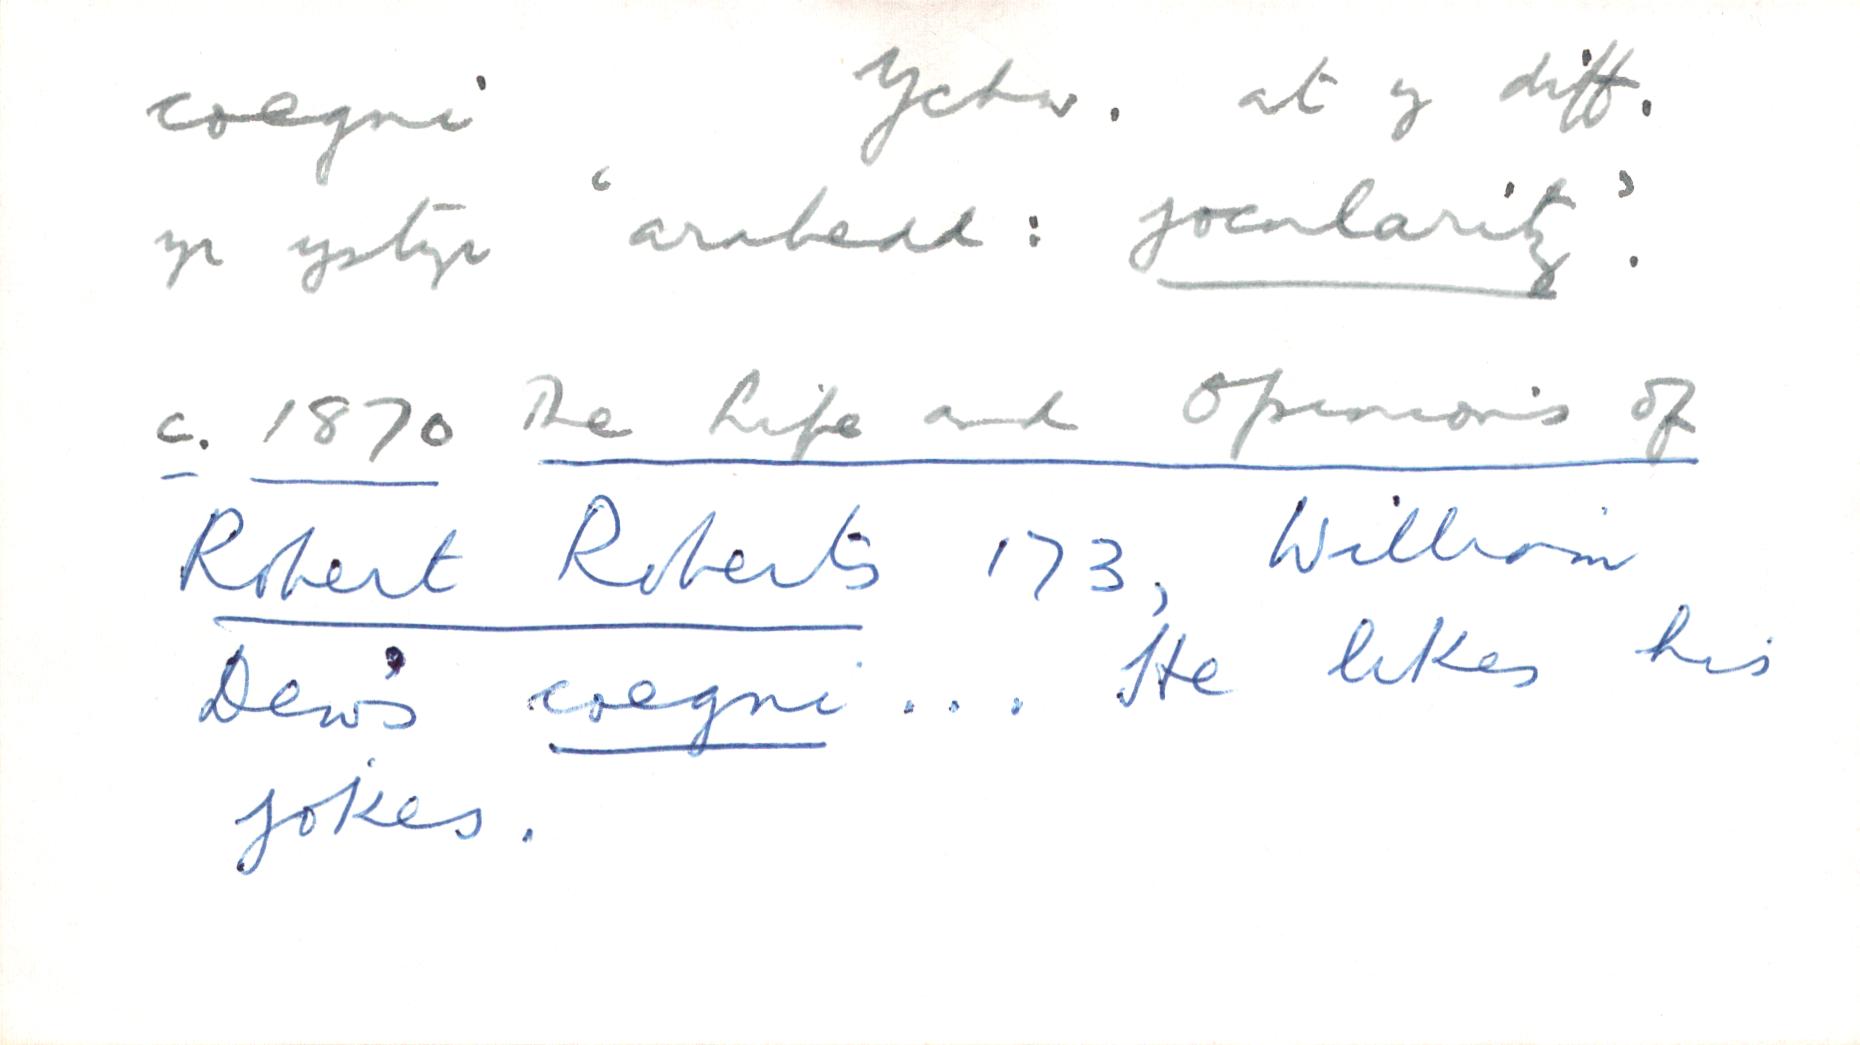 coegni Ychw. at y diff.
yr ystyr 'arabedd: jocularity'.
c. 1870 The Life and Opinions of
Robert Roberts 173, William
Dew's coegni... He likes his
jokes.